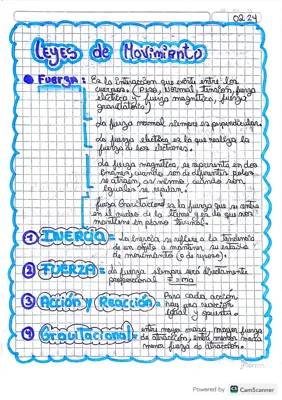 02-24
Leyes de Movimiento
Fuerza: Es la Interaccion que existe entre los
cuerpos. (Peso, Normal, tensión, fuerza
eléctrica y fuerza magnética, fuerza
gravitatoria)
La fuerza normal siempre es perpendicular.
La fuerza electrica es la que realiza la
fuerza de los electrones.
La fuerza magnetica, se representa en dos
imanes, cuando son de diferentes polos
se atraen, asi mismo, cuando son
iguales se repelan.
fuerza Gravitacional es la fuerza que se
en el de la tierra y es la que nos
mantiene en plano
1 INERCIA = La Inercia se refiere a la tendencia
de un objeto a mantener su estado
de movimiento (o de reposo).
2 FUERZA = La fuerza siempre será directamente
proporcional F=ma
3 Acción y Reacción = Para cada acción
hay una reacción
igual y opuesta.
4 Gravitacional = entre mayor masa, mayor fuerza
de atracción, entre menor masa
menor fuerza de atracción.
Powered by CS CamScanner